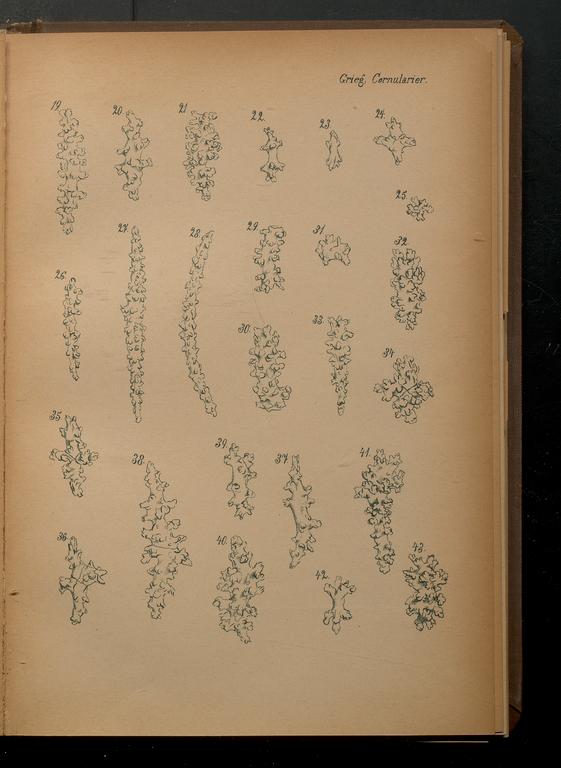 Grieg, Cornularier.
19.
20.
21.
22.
23.
24.
25.
26.
27.
28.
29.
31.
32.
30.
33.
34.
35.
38.
39.
37.
41.
36.
40.
42.
43.